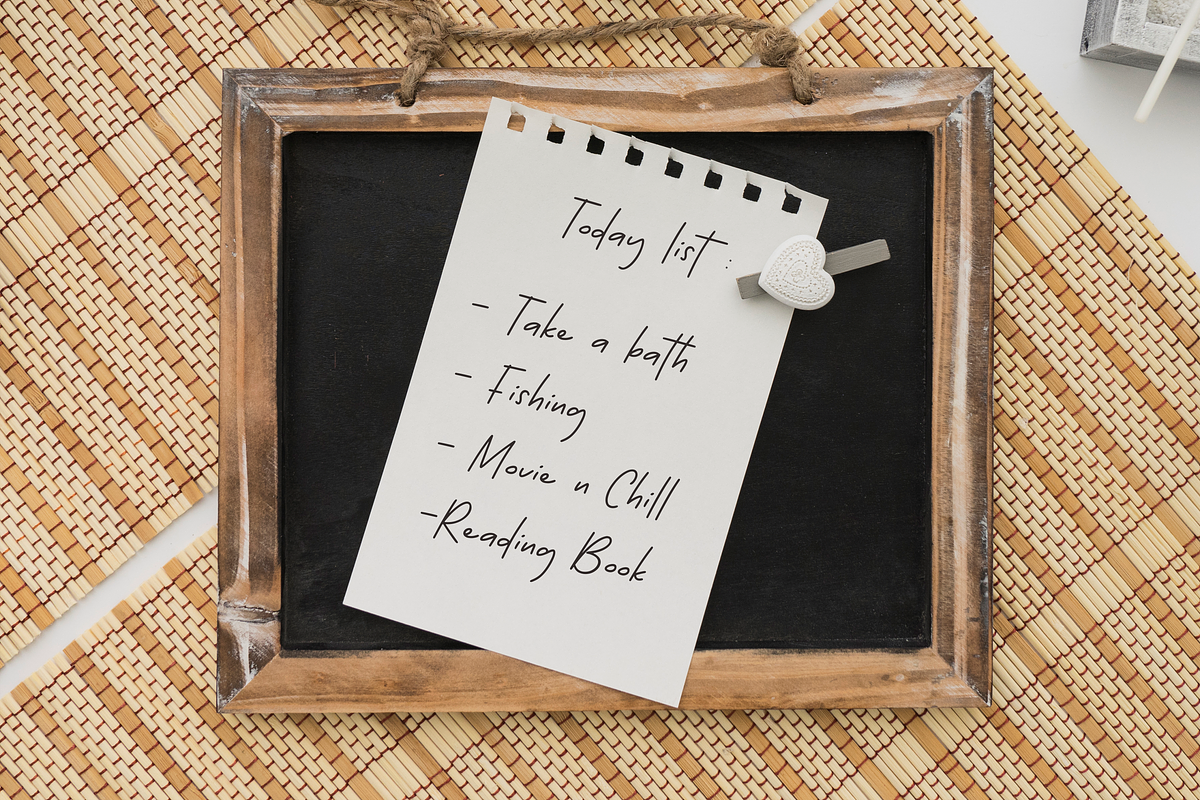 Today list :
- Take a bath
- Fishing
- Movie n Chill
-Reading Book